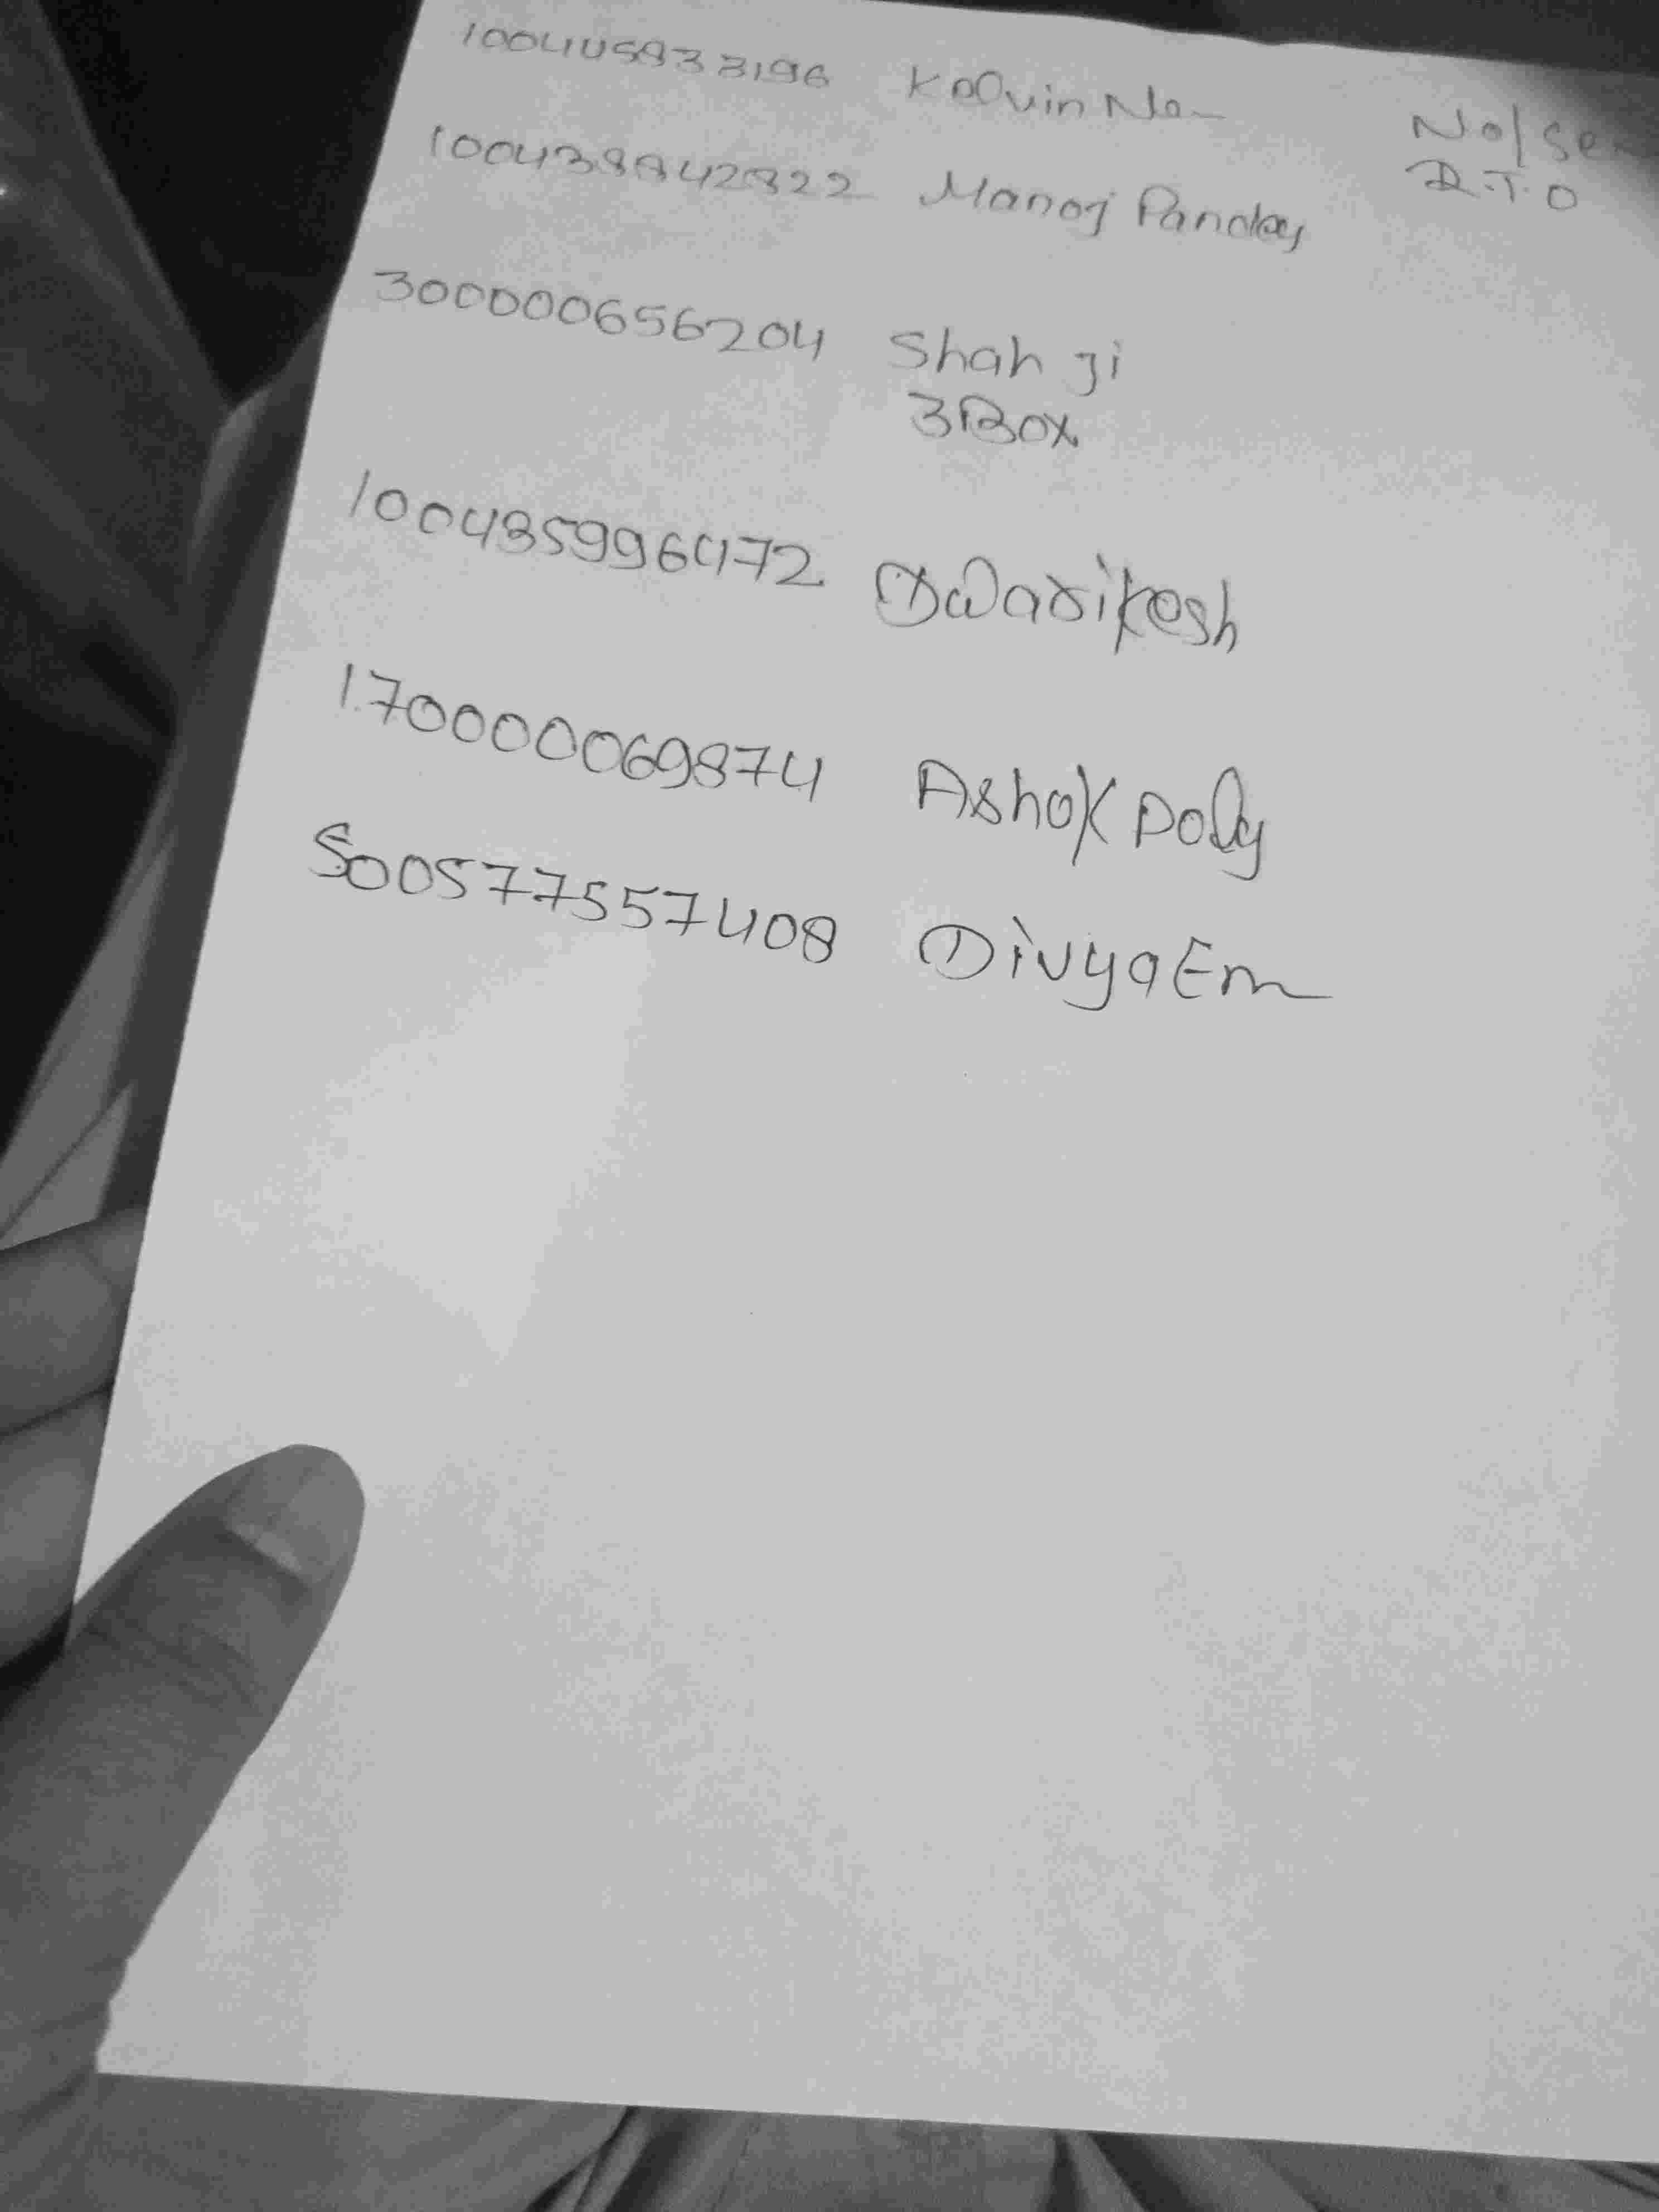 100445933196 Kalvin Ne No/Se
100438842822 Manoj Pandey R.T.O
300000656204 Shah Ji
3Box
100435996472 Dwarikesh
170000069874 Ashok Poly
500577557408 Divya Em